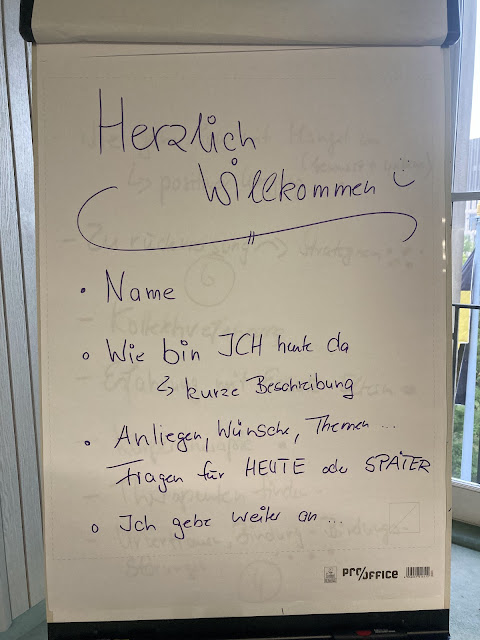 Herzlich
Willkommen
• Name
• Wie bin ICH heute da
↳ kurze Beschreibung
• Anliegen, Wünsche, Themen ...
Fragen für HEUTE oder SPÄTER
• Ich gebe weiter an ...
PRO/OFFICE